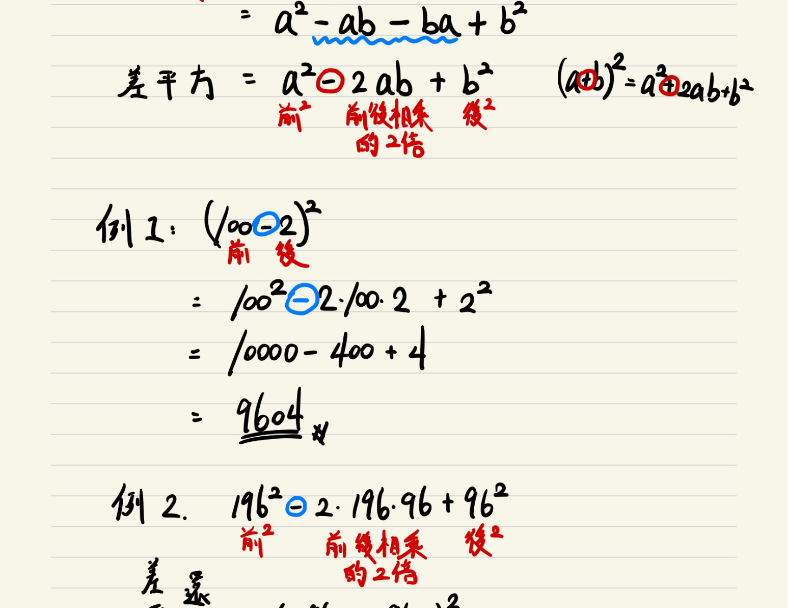 = a² - ab - ba + b²
差平方 = a² - 2ab + b² (a+b)² = a² + 2ab + b²
前² 前後相乘 後²
的2倍
例1: (100-2)²
前 後
= 100² - 2·100·2 + 2²
= 10000 - 400 + 4
= 9604
例2. 196² - 2·196·96 + 96²
前² 前後相乘 後²
的2倍
差 還